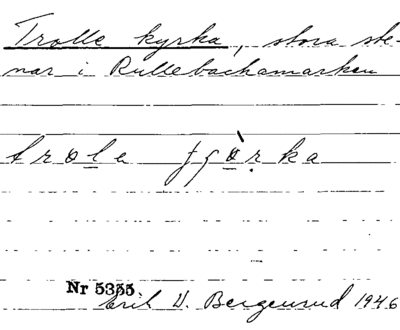 Trolle kyrka, stora ste-
nar i Rullebackamarken
trole
Nr 5355
Erik W. Bergenrud 1946